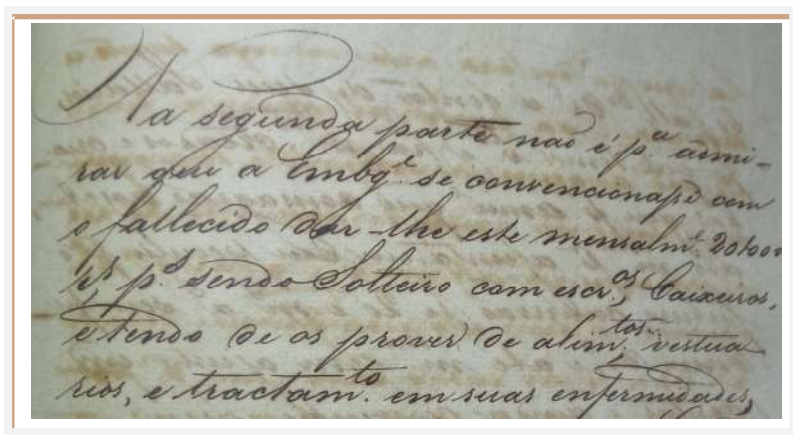 Na segunda parte não é p.ª admi-
rar que a Embg.e se convencionasse com
o fallecido dar-lhe este mensalm.e 20$000
r.s p.s sendo Solteiro com escr.os, Caixeiros,
e tendo de os prover de alim.tos, vestua
rios, e tractam.to em suas enfermidades,